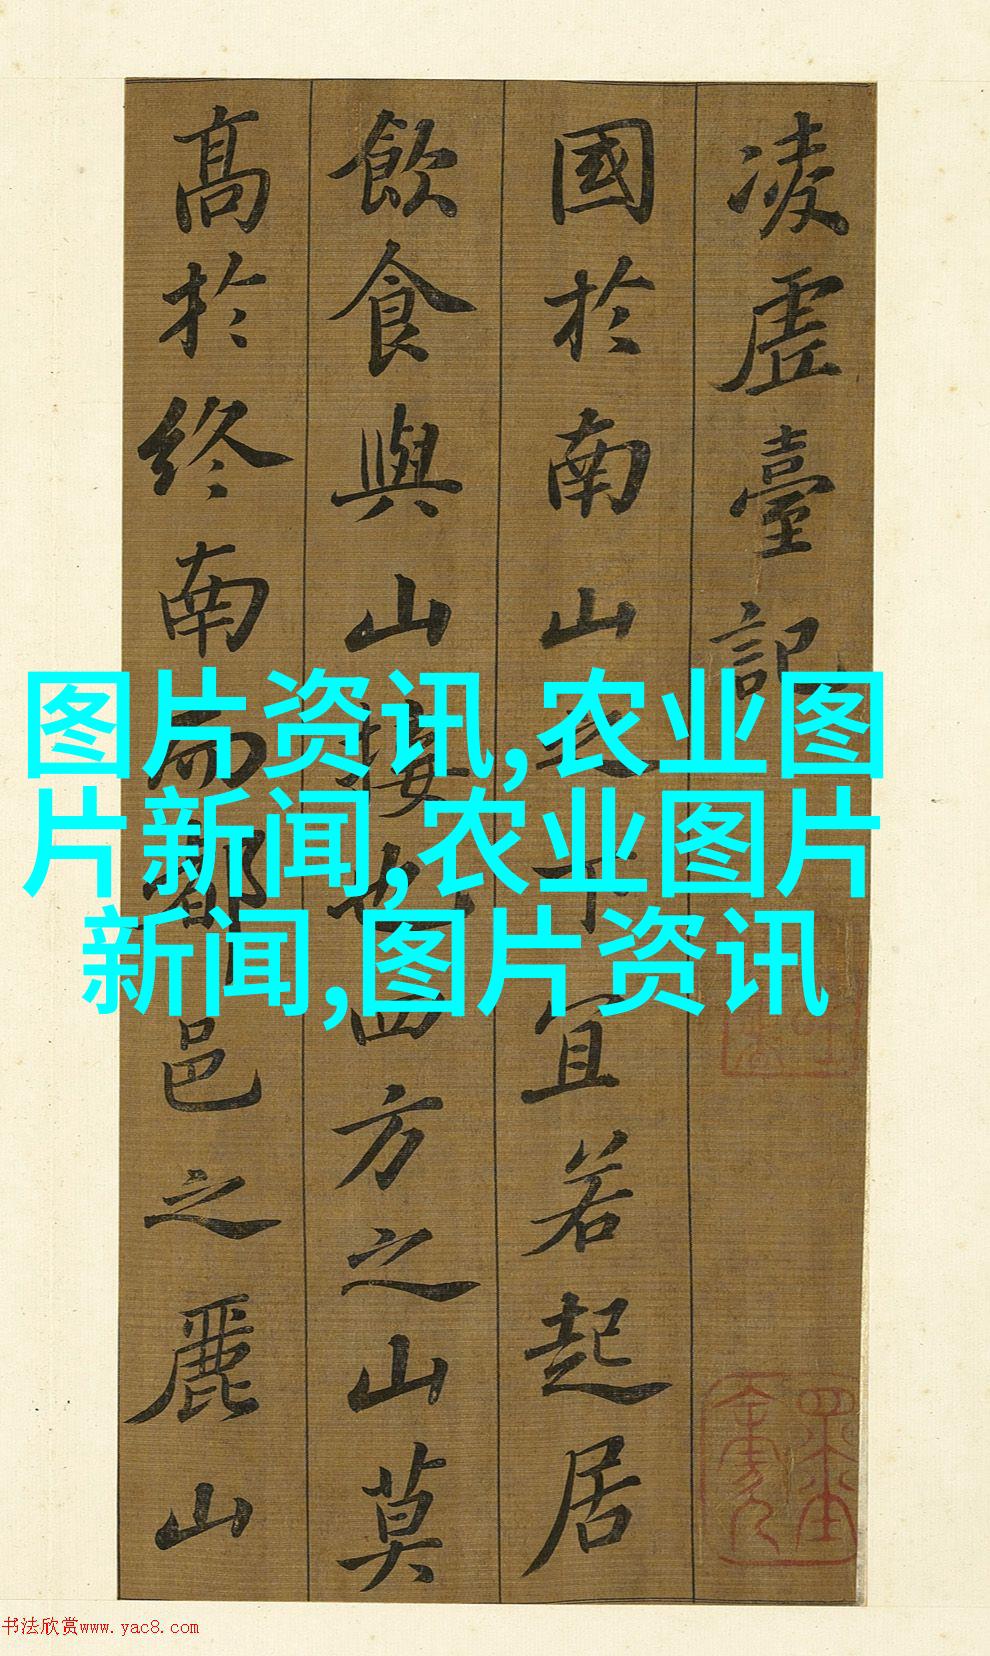 凌虛臺記
國於南山之下宜若起居
飲食與山接也四方之山莫
高於終南而都邑之麗山
图片资讯,农业图
片新闻,农业图片
新闻,图片资讯
书法欣赏www.yac8.com